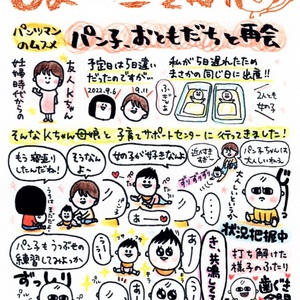 パンリマン
のムスメ
パン子、おともだちと再会
妊婦時代からの
友人Kちゃん
予定日は5日違い
だったのですが…
2022.9.6
9.11
私が5日遅れたため
まさかの同じ日に出産!!
2人とも
女の子
そんなKちゃん母娘と子育てサポートセンターに行ってきました!
もう寝返り
したんだね!
そうなん
よ〜
女の子が好きなんよ
近すぎ
パン子ちゃんは
大人しいねえ
ずりずり
状況把握中
パン子もうつぶせの
練習してみよっか
ずっしり
き、共鳴して
打ち解けた
様子のふたり
歯ぐき